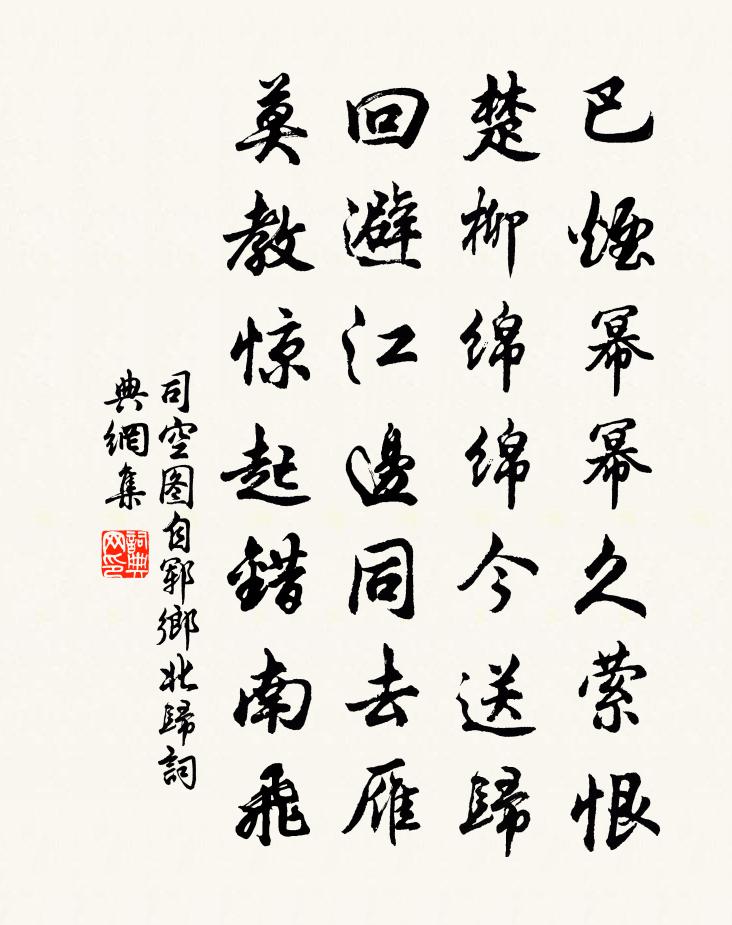 巴煙幂幂久萦恨
楚柳绵绵今送歸
回避江邊同去雁
莫教惊起錯南飛
司空图自郓鄉北歸詞
典網集
詞典网印